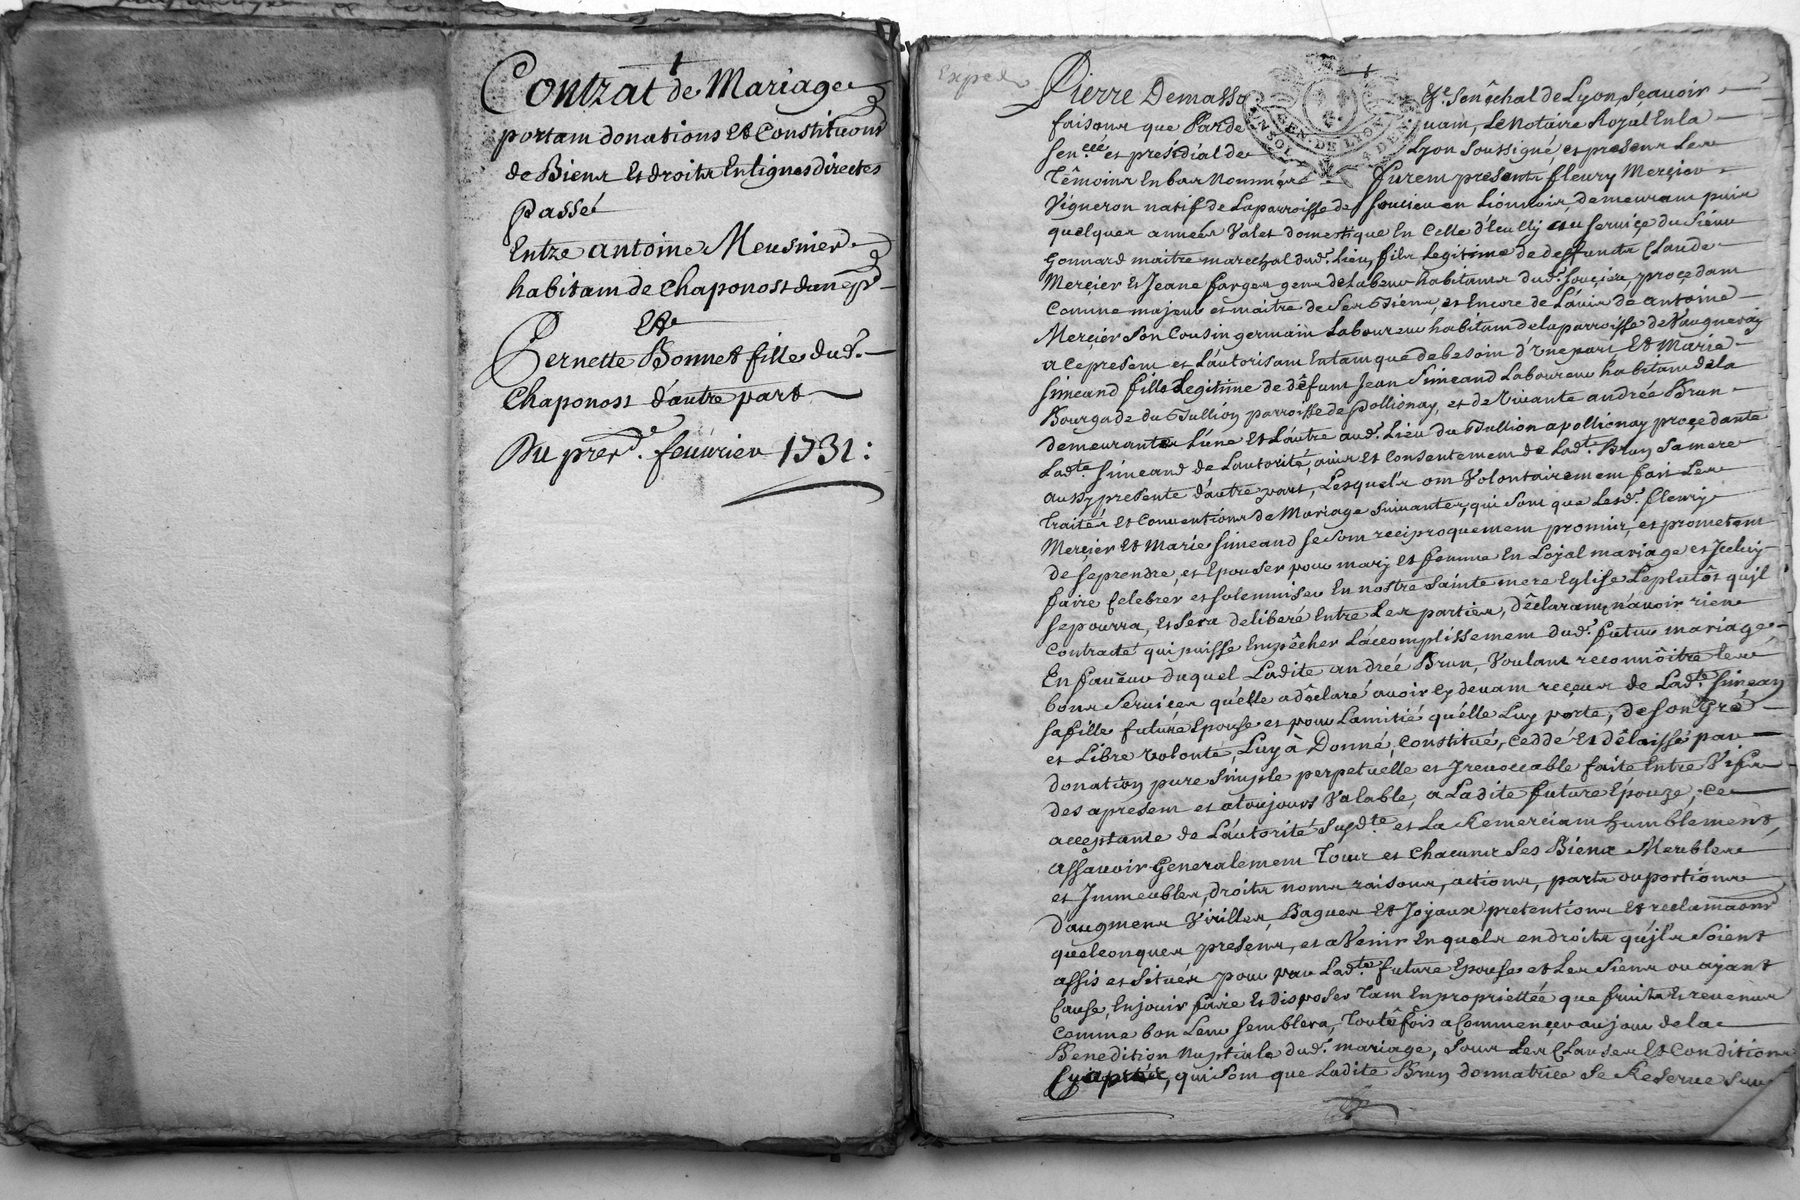 Contrat de Mariage
portant donations Et Constitutions
de Biens Et droits En lignes directes
passé
Entre antoine Meusnier
habitant de Chaponost d'une pt
Et
Pernette Bonnet fille dud.
Chaponost d'autre part
Du prer. feuvrier 1731 :
Exped
Pierre Demasso Sénéchal de Lyon, Sçavoir
faisons que Pardevant, Le Notaire Royal En la
Sencée et presidial de Lyon soussigné, et presens Les
Témoins En bas Nommés furent presents fleury Merçier
Vigneron natif de La parroisse de Soucieu en Lionnois demeurant puis
quelques années Valet domestique En Celle d'Eculy au service du Sieur
Gonnard maitre marechal dud. Lieu, fils Legitime de deffuncts Claude
Merçier Et Jeane farges gens de Labeur habitants dud. Souçieu, proçedant
Comme majeur et maitre de Ses Biens, et Encore de L'avis de antoine
Merçier Son Cousin germain Laboureur habitant de la parroisse de Vaugneray
a Ce present et L'autorisant En tant que de besoin d'une part Et Marie
Simeand fille Legitime de défunt Jean Simeand Laboureur habitant de la
Bourgade du Jullion parroisse de pollionay, et de Vivante andrée Brun
demeurantes L'une Et L'autre aud. Lieu du Jullion a pollionay proçedante
Ladte Simeand de L'autorité, avis Et Consentement de Ladte Brun Sa mere
aussy presente d'autre part, Lesquels ont Volontairement fait Les
Traités Et Conventions de Mariage Suivantes, qui Sont que Lesd. fleury
Merçier Et Marie Simeand se Sont reciproquement promis, et promettent
de Se prendre et Epouser pour mary Et femme En Loyal mariage et Jceluy
faire Celebrer et solemniser En nostre Sainte mere Eglise Le plutôt qu'jl
Se pourra, Et Sera deliberé Entre Les parties, déclarant n'avoir rien
Contracté qui puisse Empêcher L'accomplissement dud. futur mariage
En faveur duquel Ladite andrée Brun, Voulant reconnôitre les
bons Services qu'elle a déclaré avoir Cy devant reçeus de Ladte. Simean
Sa fille future Epouse et pour L'amitié qu'elle Luy porte, de Son Gré
et Libre volonté, Luy à Donné, Constitué, Ceddé Et délaissé par
donation pure Simple perpetuelle et Jrevocable faite Entre Vifs
des apresent et a toujours Valable, a Ladite future Epouze, Ce
acceptante de L'autorité Susdte. et La Remerciant humblement,
assavoir Generalement Tous et Chacuns Ses Biens Meubles
et Jmmeubles, droits noms raisons, actions, parts ou portions
d'augment Virilles, Bagues Et Joyaux pretentions Et reclamaons
quelconques presens, et a Venir En quels endroits qu'jls Soient
assis et Situés pour par Ladte. future Epouse et Les Siens ou ayant
Cause, En jouir faire Et disposer Tant En proprietté que fruits Et revenus
Comme bon Leur Semblera, Toutefois a Commencer au jour de la
Benedition Nuptiale dud. mariage, Sous Les Clauses Et Conditions
Cy aprés, qui Sont que Ladite Brun donnatrice Se Reserve Sur